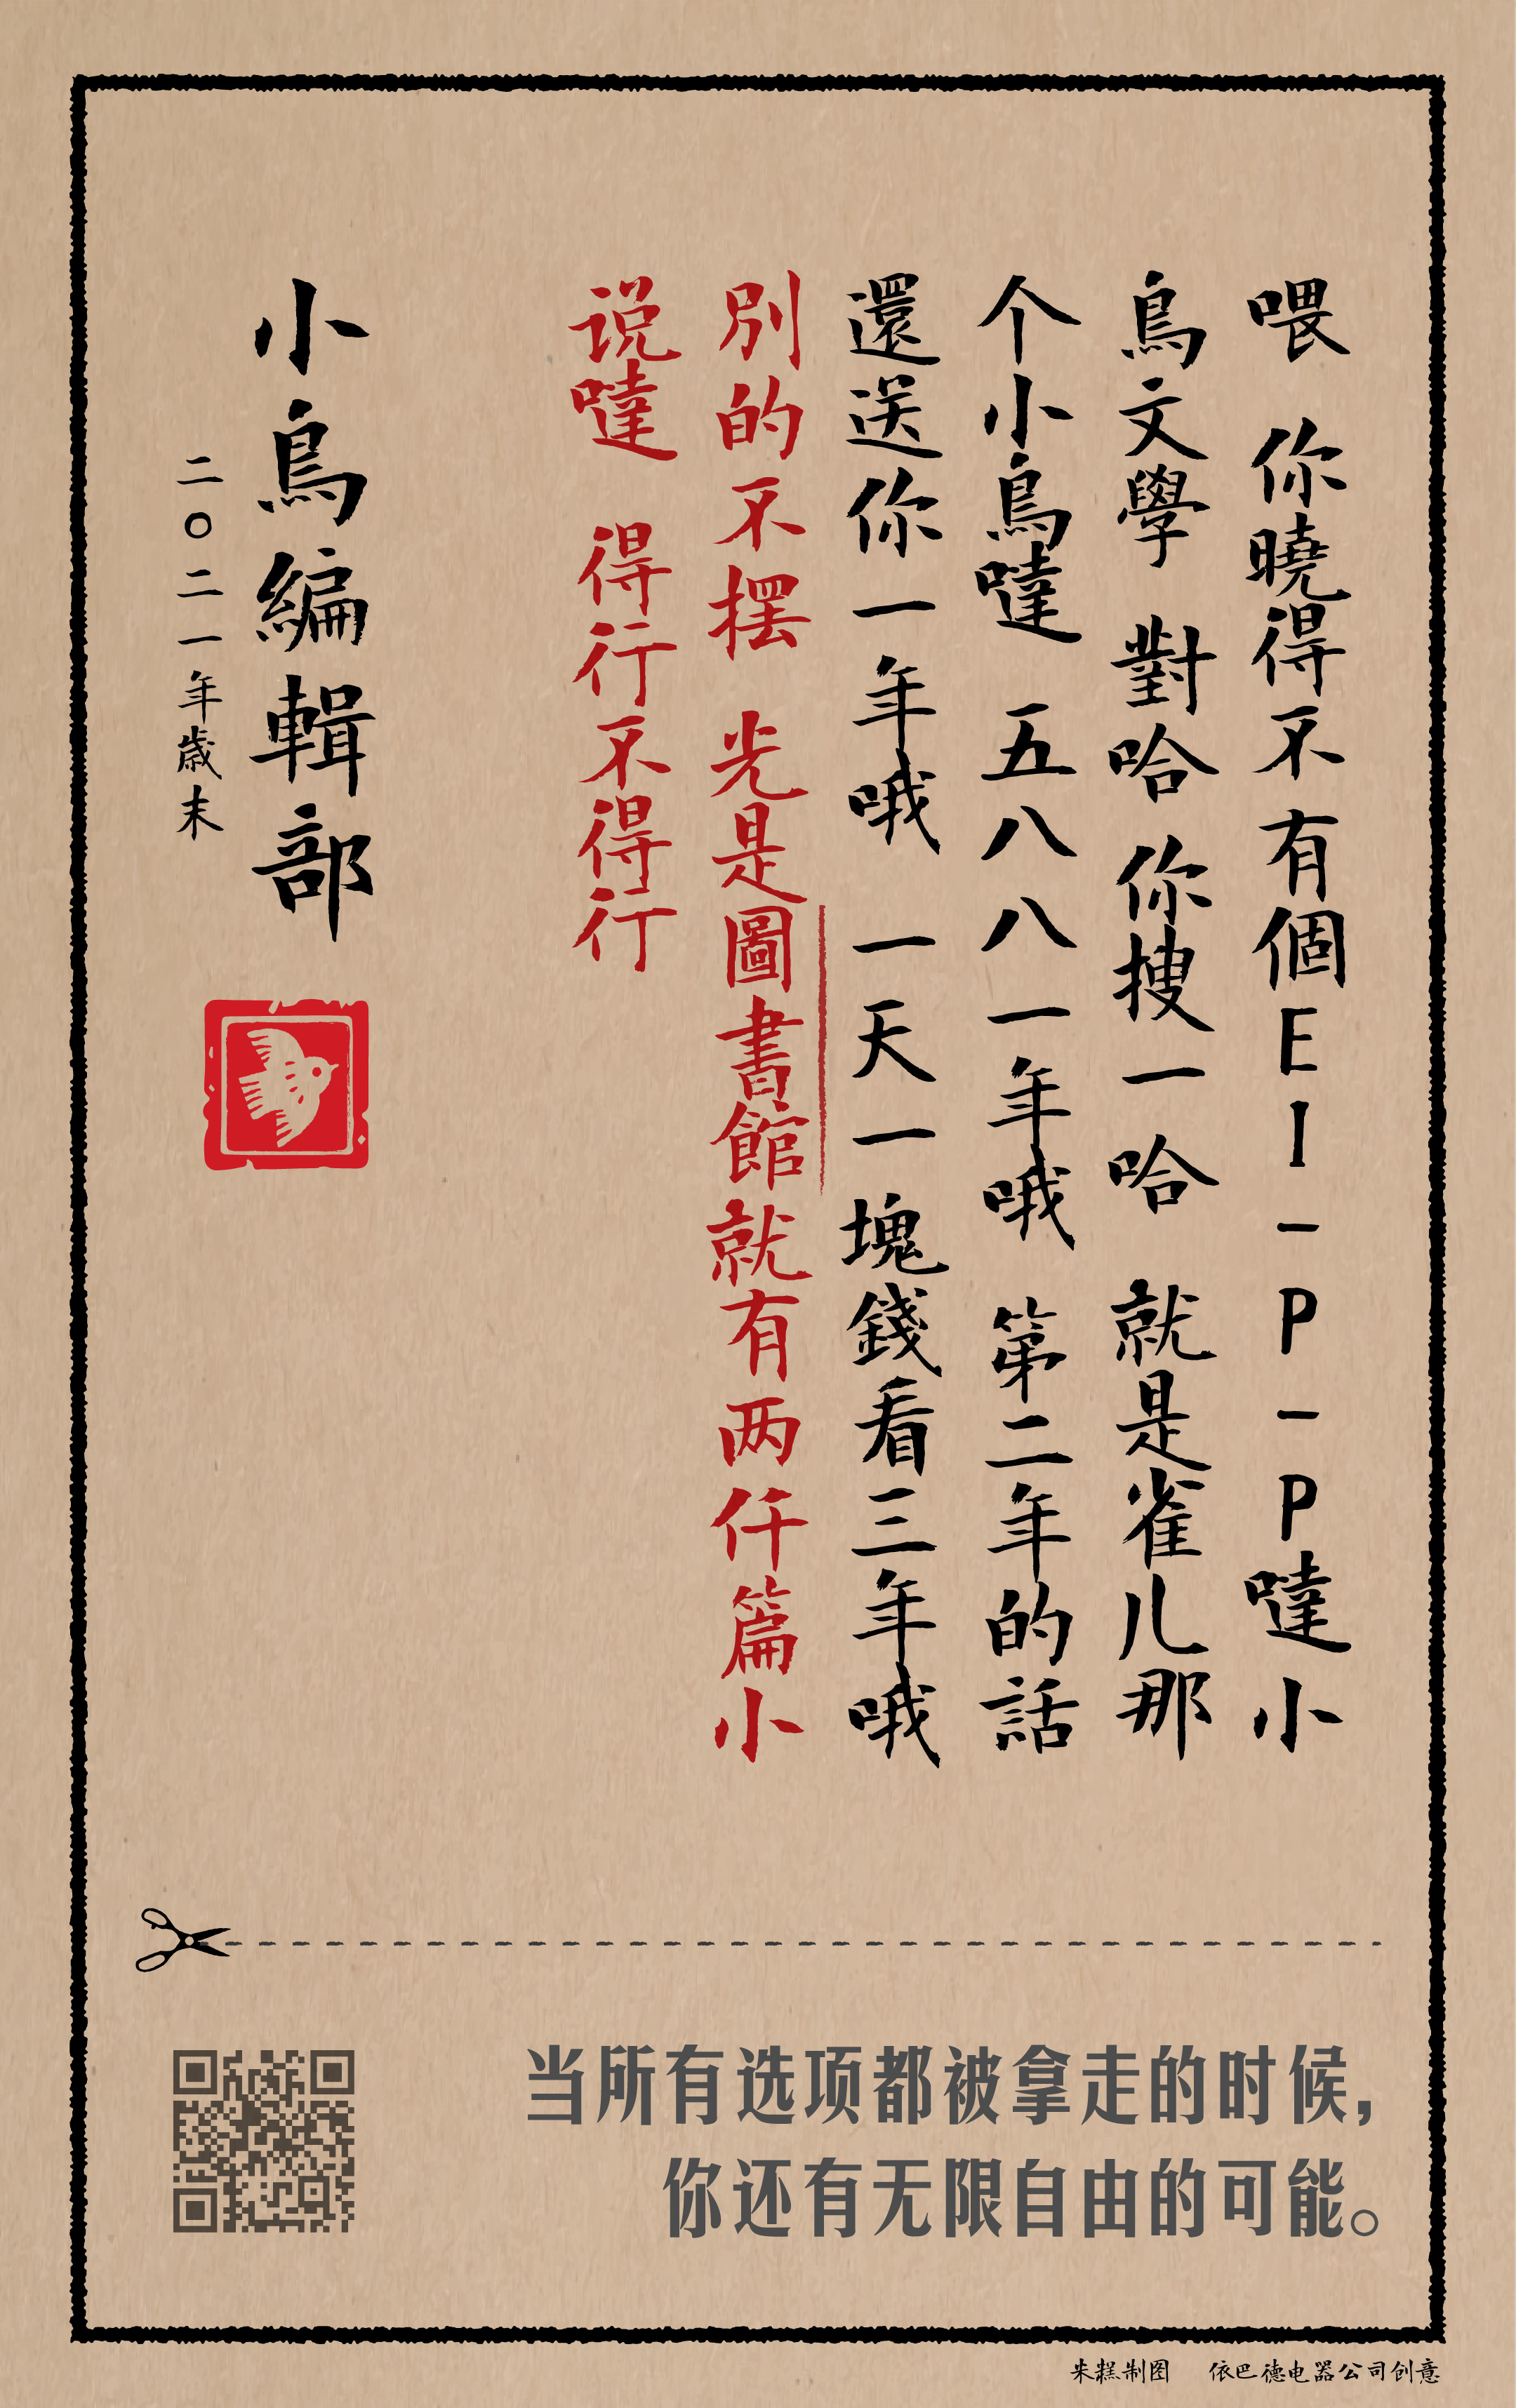 喂 你曉得不有個EI-P-P噠小
鳥文學 對哈 你搜一哈 就是雀儿那
个小鳥噠 五八八一年哦 第二年的話
還送你一年哦 一天一塊錢看三年哦
别的不摆 光是圖書館就有两仟篇小
说噠 得行不得行
小鳥編輯部
二〇二一年歲末
当所有选项都被拿走的时候，
你还有无限自由的可能。
朱糕制图 依巴德电器公司创意